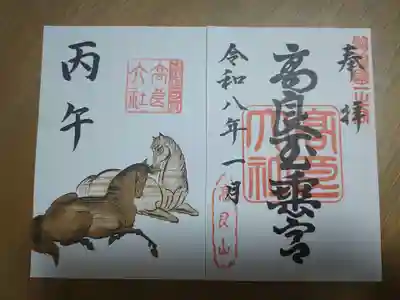 奉拝
高良玉垂宮
高良大社
令和八年一月
高良山
丙午
高良
大社